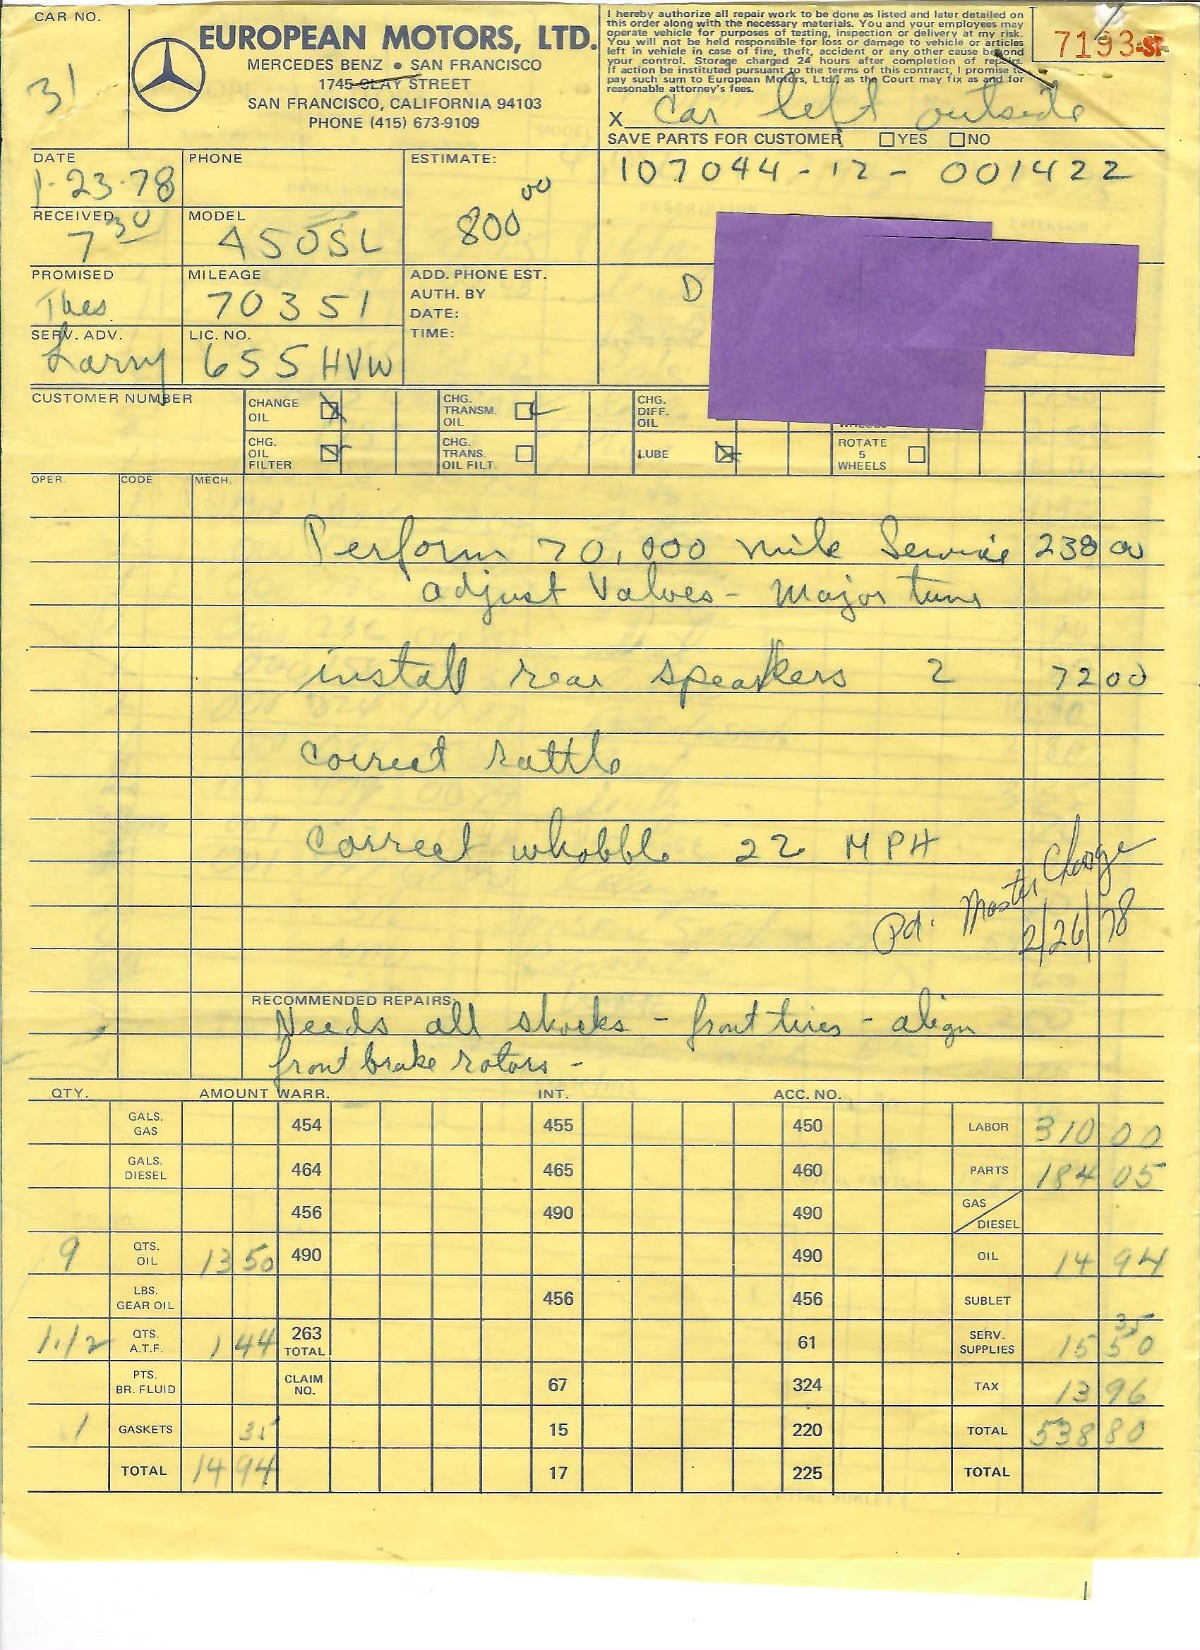 CAR NO.
31
EUROPEAN MOTORS, LTD.
MERCEDES BENZ • SAN FRANCISCO
1745 CLAY STREET
SAN FRANCISCO, CALIFORNIA 94103
PHONE (415) 673-9109
I hereby authorize all repair work to be done as listed and later detailed on
this order along with the necessary materials. You and your employees may
operate vehicle for purposes of testing, inspection or delivery at my risk.
You will not be held responsible for loss or damage to vehicle or articles
left in vehicle in case of fire, theft, accident or any other cause beyond
your control. Storage charged 24 hours after completion of repairs.
If action be instituted pursuant to the terms of this contract, I promise to
pay such sum to European Motors, Ltd. as the Court may fix as and for
reasonable attorney's fees.
7193-SF
X car left outside
SAVE PARTS FOR CUSTOMER YES NO
DATE PHONE ESTIMATE:
1-23-78
800 00
107044-12-001422
RECEIVED MODEL
7 30 450SL
PROMISED MILEAGE ADD. PHONE EST.
Thes 70351 AUTH. BY
DATE:
D
SERV. ADV. LIC. NO. TIME:
Larry 655HVW
CUSTOMER NUMBER
CHANGE OIL
CHG. TRANSM. OIL
CHG. DIFF. OIL
CHG. OIL FILTER
CHG. TRANS. OIL FILT.
LUBE
ROTATE 5 WHEELS
OPER. CODE MECH.
Perform 70,000 mile Service 238 00
adjust Valves - Major tune
install rear speakers 2 72 00
correct rattle
correct whobble 22 MPH
Pd. Master Charge
2/26/78
RECOMMENDED REPAIRS:
Needs all shocks - front tires - align
front brake rotors -
QTY. AMOUNT WARR. INT. ACC. NO.
GALS. GAS 454 455 450 LABOR 310 00
GALS. DIESEL 464 465 460 PARTS 184 05
456 490 490 GAS / DIESEL
9 QTS. OIL 13 50 490 490 OIL 14 94
LBS. GEAR OIL 456 456 SUBLET
1.1/2 QTS. A.T.F. 1 44 263 TOTAL 61 SERV. SUPPLIES 15 50 35
PTS. BR. FLUID CLAIM NO. 67 324 TAX 13 96
1 GASKETS 35 15 220 TOTAL 538 80
TOTAL 14 94 17 225 TOTAL